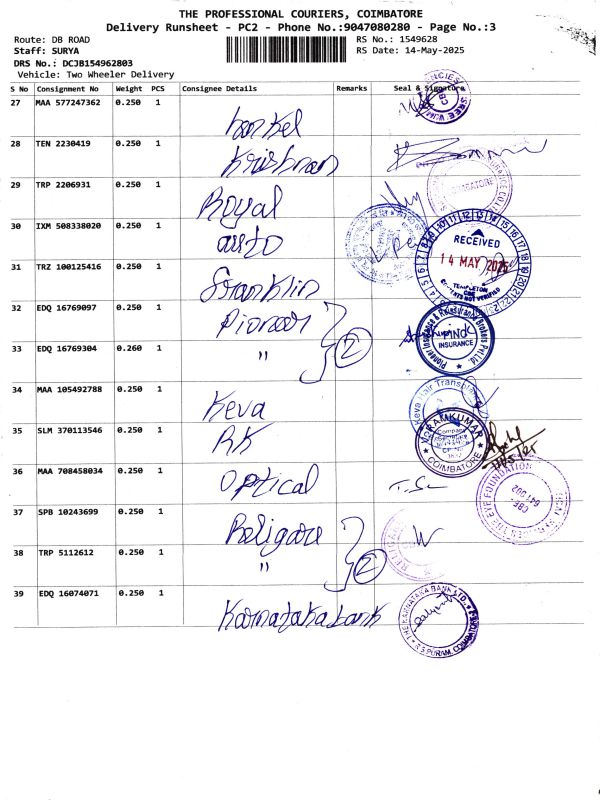 THE PROFESSIONAL COURIERS, COIMBATORE
Delivery Runsheet - PC2 - Phone No.:9047080280 - Page No.:3
Route: DB ROAD
RS No.: 1549628
Staff: SURYA
RS Date: 14-May-2025
DRS No.: DCJB154962803
Vehicle: Two Wheeler Delivery
S No Consignment No Weight PCS Consignee Details Remarks Seal & Signature
27 MAA 577247362 0.250 1
28 TEN 2230419 0.250 1 Krishnan
29 TRP 2206931 0.250 1 Royal
30 IXM 508338020 0.250 1 auto
31 TRZ 100125416 0.250 1 Franklin
32 EDQ 16769097 0.250 1 Pioneer
33 EDQ 16769304 0.260 1 " 2
34 MAA 105492788 0.250 1 Keva
35 SLM 370113546 0.250 1 RK
36 MAA 708458034 0.250 1 Optical
37 SPB 10243699 0.250 1 Religare
38 TRP 5112612 0.250 1 " 2
39 EDQ 16074071 0.250 1 Karnataka bank
RECEIVED
14 MAY 2025
TEMPLETON
CBE
CONTENTS NOT VERIFIED
Pioneer Insurance & Reinsurance Brokers Pvt Ltd.
INSURANCE
Keva Hair Transplant
RAMKUMAR
Company
COIMBATORE
THE EYE FOUNDATION
CBE-
641 002
THE KARNATAKA BANK LTD.,
COIMBATORE